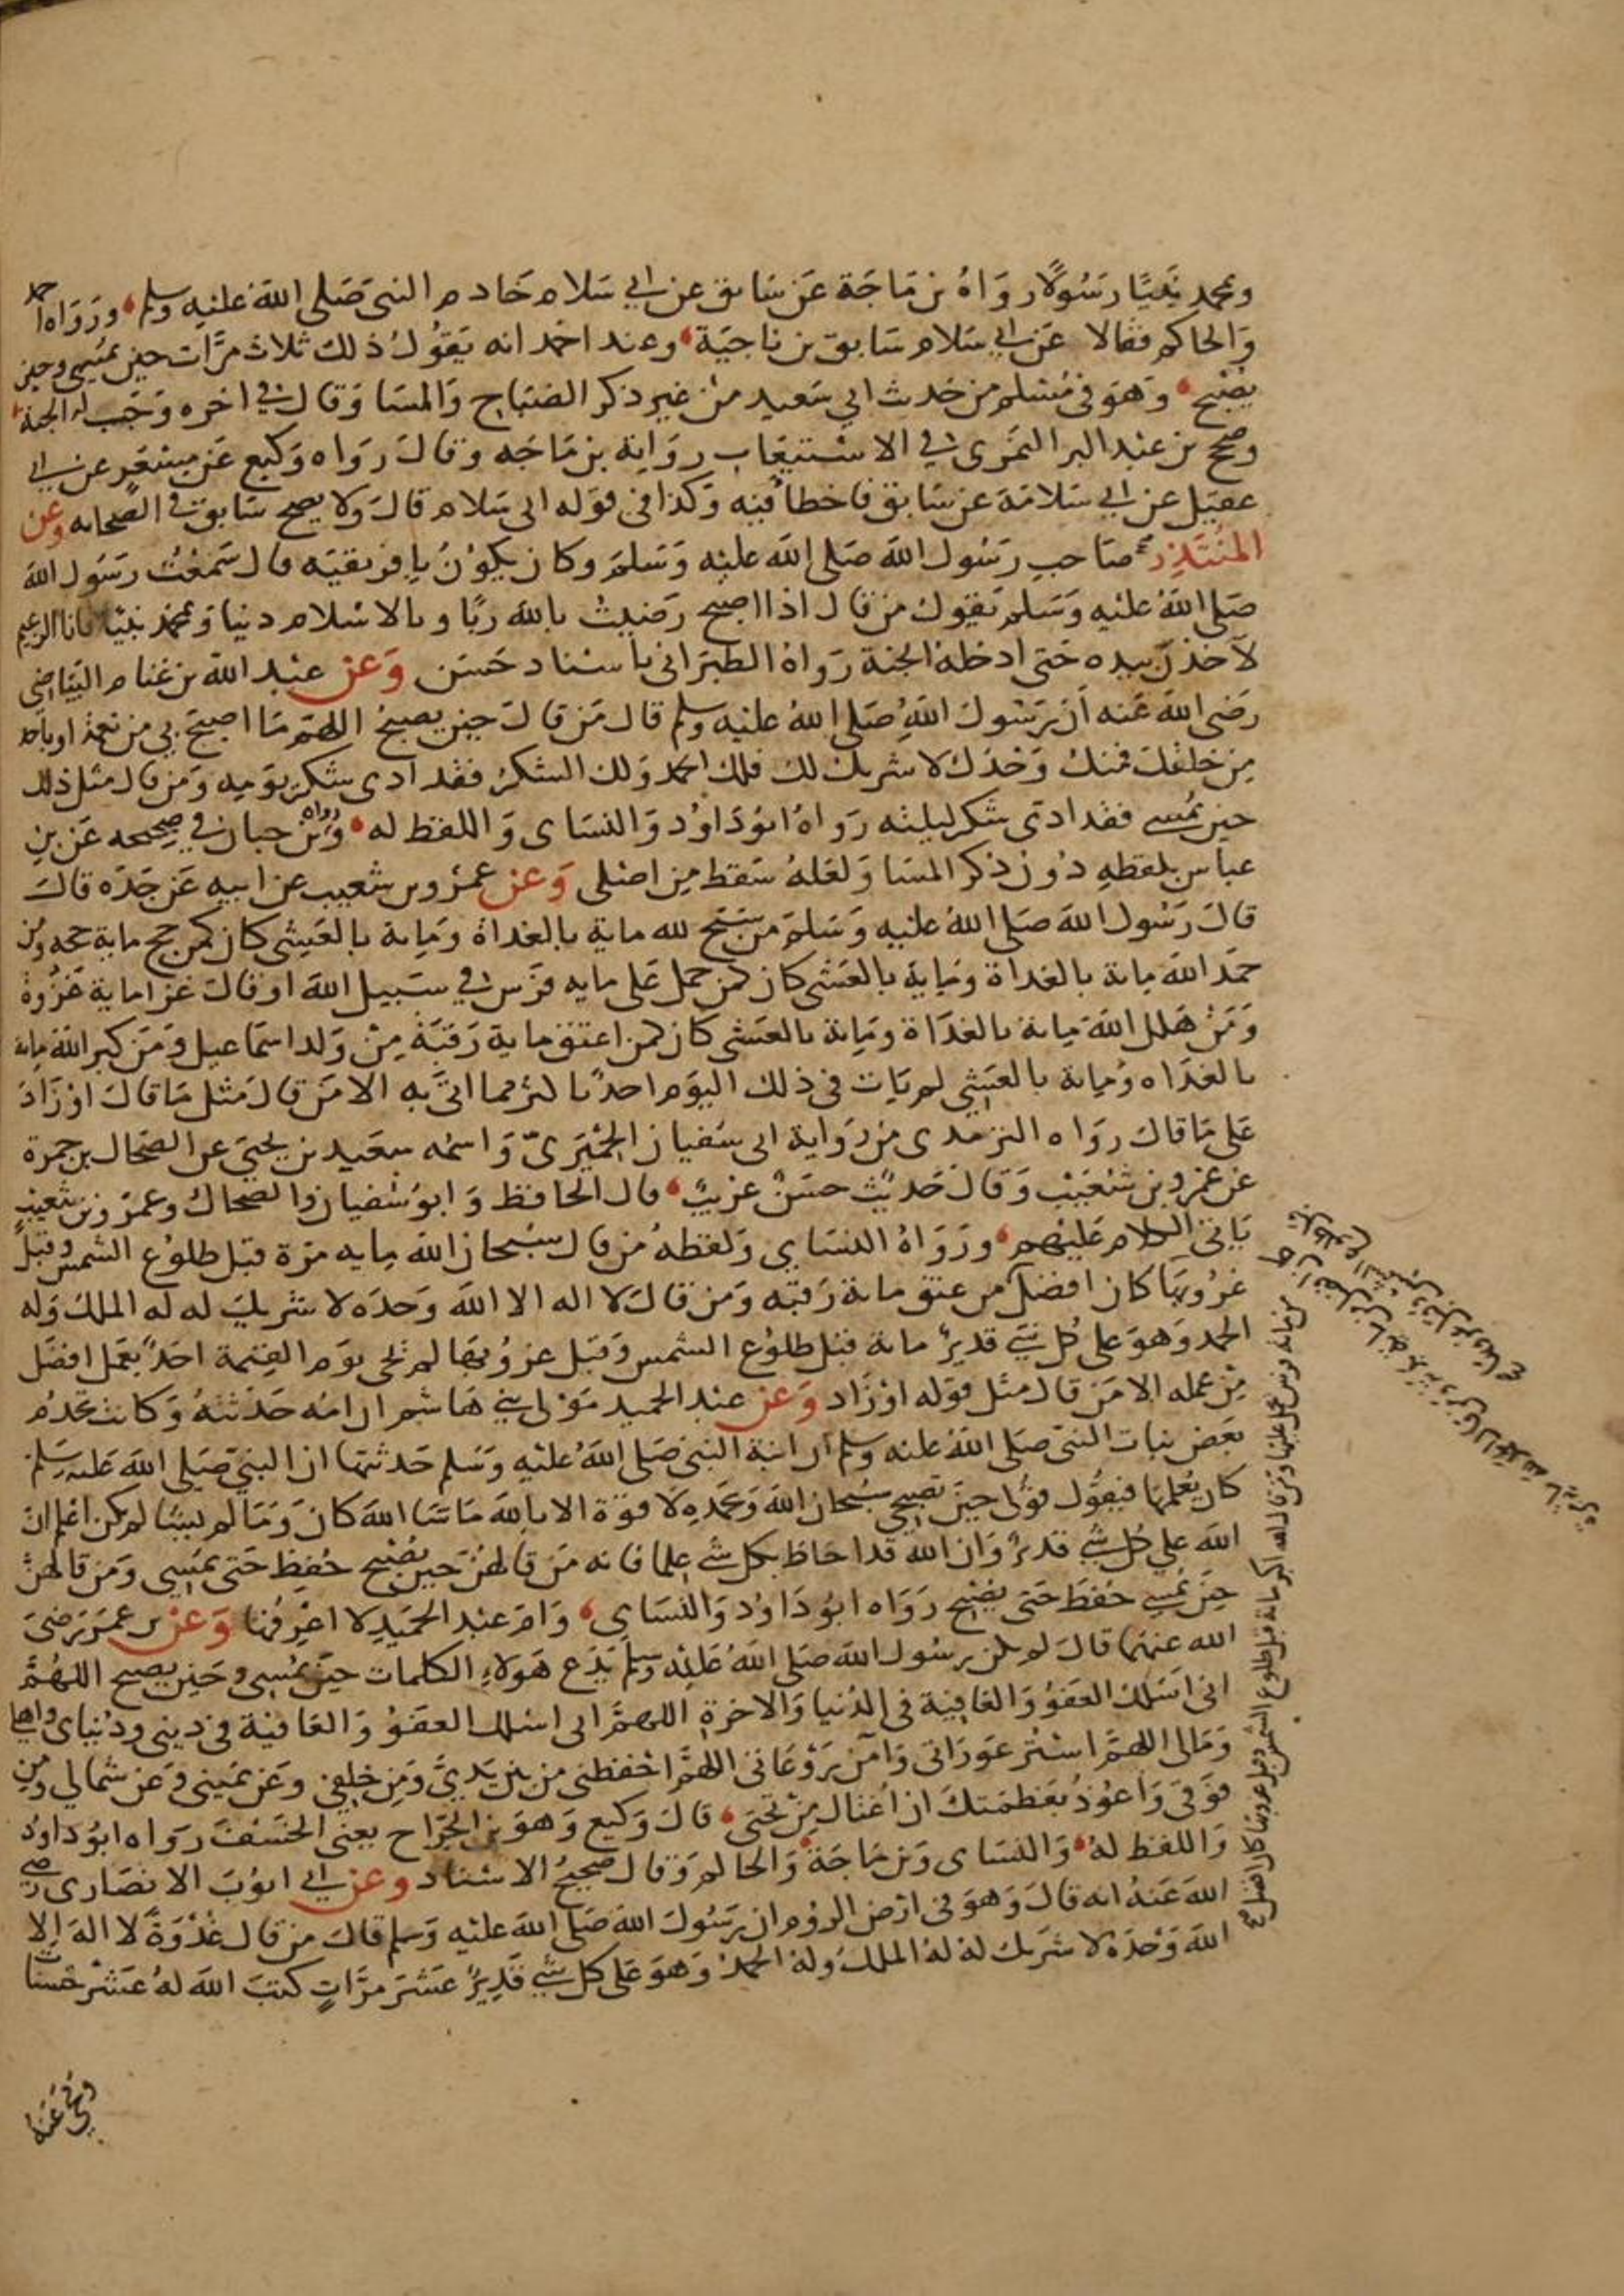 وبمحمد نبيًا رسولًا رواهُ بن مَاجَة عَن سَابق عن ابي سَلام خَادم النبى صَلى الله عَليه وسلم ورَوَاه احمد
وَالحاكم فقالا عَن ابي سَلام سَابق بن نَاجيَة وعند احمد انه يَقوُلُ ذلك ثلاث مرَّات حين يمسى وحين
يصبح وَهوَ فى مُسلم من حَدث ابي سَعيد من غير ذكر الصَبَاح وَالمسَا وَقال في اخره وَجَب له الجنة
وصحح بن عَبد البر النمَرى في الاستيعَاب روَاية بن مَاجَه وقالَ رَوَاه وَكيع عَن مِسعَرٍ عن ابي
عقيل عن ابي سَلامَة عن سَابق فاخطأ فيه وَكذا فى قوَله ابى سَلام قالَ وَلا يصح سَابق فى الصحابه وعن
المنُيَذِر صَاحبِ رَسُول الله صَلى الله عليْه وَسَلم وكان يكوُنُ بإفريقيَه قال سَمعْتُ رسَوُل الله
صَلى اللهُ عليْه وَسَلم يَقول من قال اذا اصبح رَضيتُ بالله رَبًا وبالاسْلام دينا وَبمحمد نبيًا فانا الزعيم
لآخذن بيده حَتى ادخلهُ الجنة رَواهُ الطبرَانى باسْناد حَسَن وَعَن عبْد الله بن غنام البيَاضى
رَضى الله عَنه أن رَسُولَ اللهِ صَلى اللهُ عليْه وسلم قال مَن قالَ حين يصبحُ اللهم مَا اصبحَ بي من نعمَة اوباحد
مِن خلقكَ فمنك وَحْدَكَ لا شريك لك فلك الحمد وَلك الشكرُ فقد ادى شكر يوَمِه وَمن قال مثل ذلك
حين يمُسى فقد ادى شكر ليلته رَواهُ ابوُ دَاوُد وَالنسَاى وَاللفظ له وَرواه بن حبان في صَحيحه عَن بنِ
عباس بلفظهِ دُون ذكر المسَا وَلعَلهُ سَقط مِن اصْلى وَعن عمرو بن شعيب عن ابيه عَن جَدّه قالَ
قالَ رَسُول الله صَلى اللهُ عليه وَسَلم مَن سَبَّح لله ماية بالغداة ومَاية بالعَشِى كان كمن حج ماية حجه ومن
حمَد الله ماية بالغداة ومَاية بالعَشى كان كمن حمل عَلى مايه فرَس في سَبيل الله او قالَ غزا ماية غَزْوةً
وَمَنْ هَلل اللهَ مِاية بالغدَاة ومَاية بالعَشى كان كمن اعتق ماية رَقبَة مِنْ وَلد اسمَاعيل وَمَن كبر اللهَ مِاية
بالغَدَاه ومَاية بالعَشِي لم يَات فى ذلك اليوَم احدٌ باكثر مما اتى به الا مَن قال مَثل مَا قالَ اوْ زَادَ
عَلى مَا قالَ روَاه الترمدى من رَواية ابى سُفيان الحِمْيَرىّ وَاسمُه سعَيد بن يحيَى عن الضحاك بن حمرة
عن عَمرو بن شُعَيْب وَقال حَديثٌ حسَنٌ غريبٌ قال الحافظ وَابوُ سُفيان وَالضحاك وعَمرَو بن شُعيب
يَاتى الكلام عَليْهم ورَوَاهُ النسَاي وَلفظهُ من قال سبُحان الله مِايه مرَة قبَل طلوُع الشمس وقَبل
غرُوبهَا كان افضلَ من عتق ماية رَقبَه وَمن قالَ لا اله الا الله وَحدَه لا شريك له له الملك وَله
الحمد وَهوَ على كل شي قديرٌ ماية قبَل طلوُع الشمس وَقبل غروُبها لم يجى يوَم القيمة احَدٌ بعَمل افضَل
مِنْ عمله الا مَن قال مثل قوَله اوْ زَاد وَعَن عبَد الحميد موَلى بني هَاشم ان امُه حَدثتهُ وَكانت تخدُم
بعَض بنات النبَى صَلى اللهُ عليه وسلم أن ابنة النبى صَلى اللهُ عليْه وَسَلم حَدثتها ان النبيَ صَلى الله عَليه سَلم
كان يُعلمهَا فيقوُل قولى حينَ تصبحي سبُحان اللهَ وَبحَمدِه لا قوَة الا بالله مَا شَا الله كان وَمَا لم يشا لم يكن اعْلم ان
الله على كل شي قديرٌ وَان الله قد احَاط بكل شي علما فانه مَن قالهنَ حين يصُبح حُفِظ حَتى يمسِى وَمَن قالهنَ
حين يمُسي حُفظ حَتى يصُبح روَاه ابوُ دَاوُد وَالنسَاى وَام عَبد الحمَيد لا اعْرفها وَعَن بن عمَر رَضىَ
الله عنهمَا قالَ لم يكن رسُول الله صَلى اللهُ عَليْه وسلم يَدَع هَوُلاءِ الكلمات حين يمُسى وحَين يصبح اللهُمَّ
انى اسَئلك العَفوُ وَالعَافيَة فى الدُنيا وَالاخرَة اللهمَّ انى اسئلك العفوَ وَالعَافيَة فى دينى ودُنيَاى واهلى
وَمَالى اللهمَّ اسْتر عوَرَاتى وَآمنْ رَوْعَاتى اللهمَّ احْفظنى من بين يَديَّ وَمِن خلفى وعَن يَمينى وَعَن شمالي ومن
فوَقى وَاعوُذُ بعَظمتكَ ان اُغتال مِنْ تحتى قالَ وَكيع وَهوَ بن الجرَّاح يعنى الخسَفَ رَوَاه ابوُ دَاوُد
وَاللفظ لهُ وَالنسَاى وَبن مَاجَة وَالحاكم وَقال صَحيحُ الاسْناد وعن ابي ايوُبَ الانصَارى رضى
الله عَنهُ انه قالَ وَهوَ فى ارْض الروُم ان رَسُولَ الله صَلى الله عَليْه وَسلم قالَ من قال غدْوَةً لا الهَ الا
الله وَحْدَه لا شرَيك لهُ لهُ الملكُ ولهُ الحمدُ وَهوَ عَلى كل شي قَديرٌ عَشرَ مرَّاتٍ كتبَ اللهُ لهُ عَشْر حَسنات
ومحى عَنه